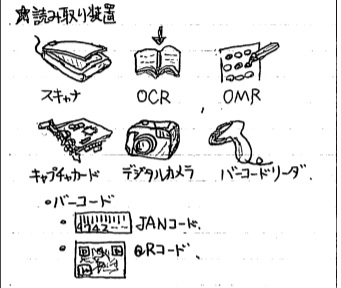 ☆読み取り装置
スキャナ OCR OMR
キャプチャカード デジタルカメラ バーコードリーダ.
•バーコード
• JANコード.
• QRコード、